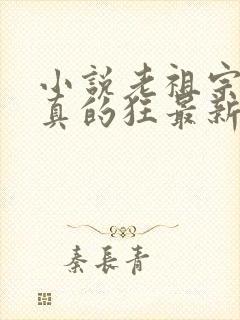 小説老祖宗
真的狂最新
秦長青